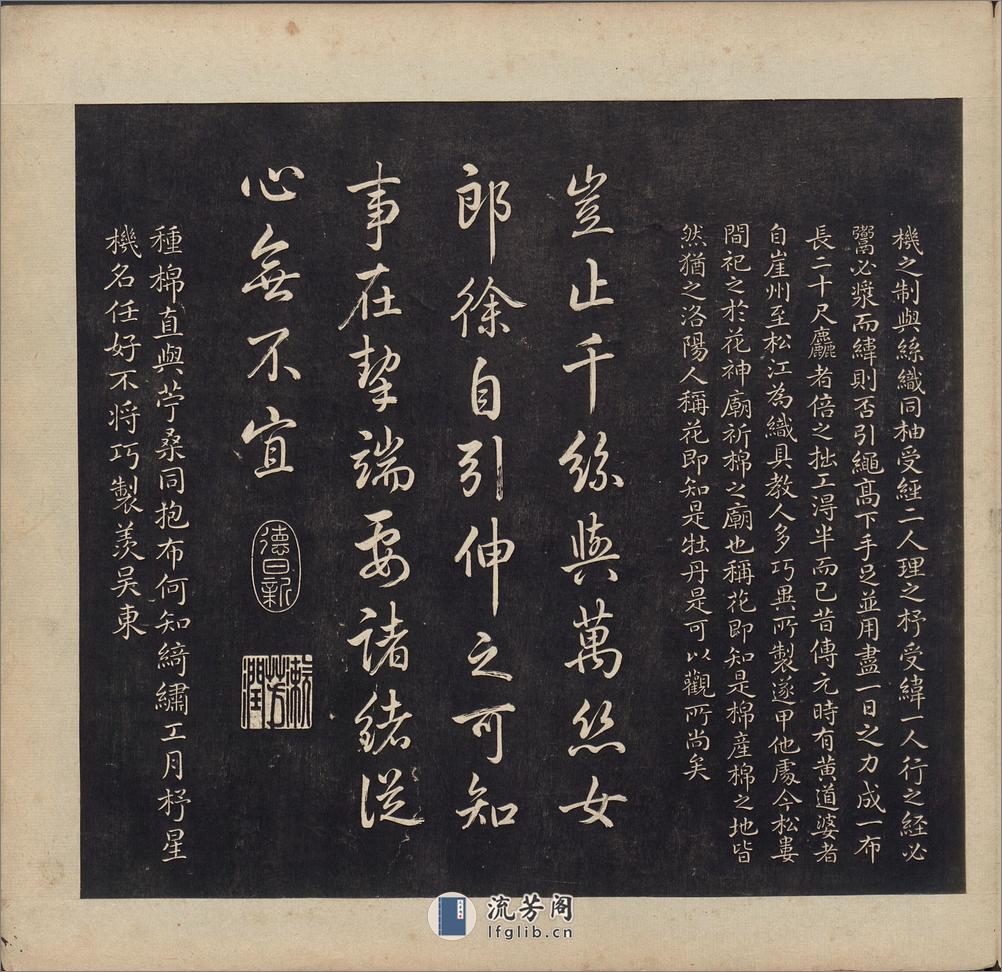 機之制與絲織同柚受經二人理之杼受緯一人行之経必
鬻必漿而緯則否引繩高下手足並用盡一日之力成一布
長二十尺麤者倍之拙工淂半而已昔傳元時有黃道婆者
自崖州至松江為織具教人多巧異所製遂甲他處今松婁
間祀之於花神廟祈棉之廟也稱花即知是棉産棉之地皆
然猶之洛陽人稱花即知是牡丹是可以觀所尚矣
豈止千絲與萬絲女
郎徐自引伸之可知
事在挈端要諸緒從
心無不宜
德日新
漱芳潤
種棉直與苧桑同抱布何知綺繡工月杼星
機名任好不将巧製羨吳東
流芳阁
lfglib.cn